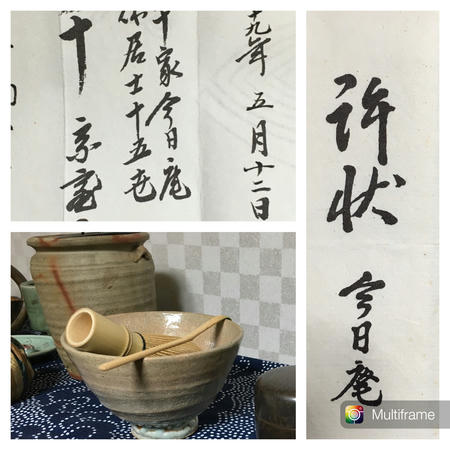 九年 五月十二日
家今日庵
居士十五世
宗室
許状 今日庵
Multiframe